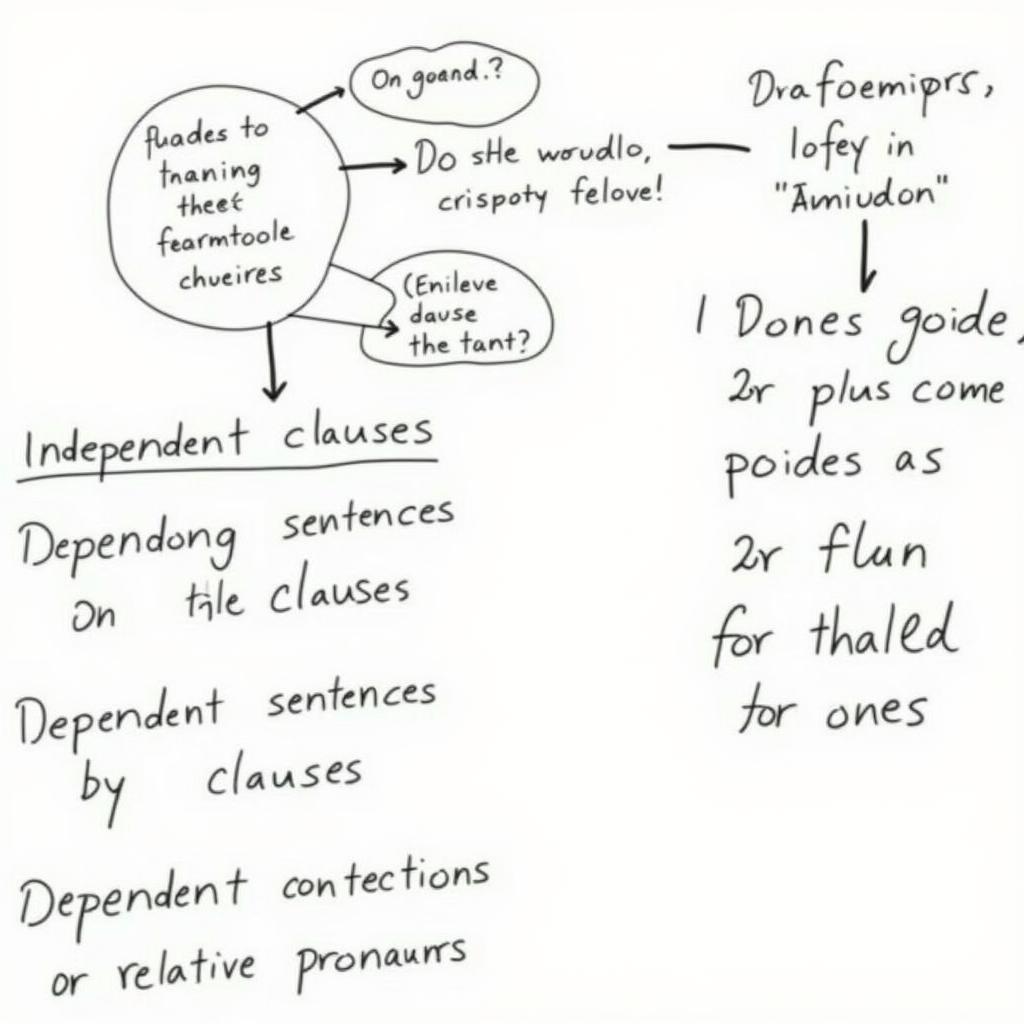 fuades to
tnaning
theet
fearmtoole
chueires
On goand.?
Do sHe wovudlo,
crispoty felove!
Drafoemiprs,
lofey in
"Amiudon"
(Enileve
dause
the tant?
Independent clauses
Dependong sentences
on tile clauses
Dependent sentences
by clauses
Dependent contections
or relative pronaurrs
1 Dones goide,
2r plus come
poides as
2r flun
for thaled
for ones